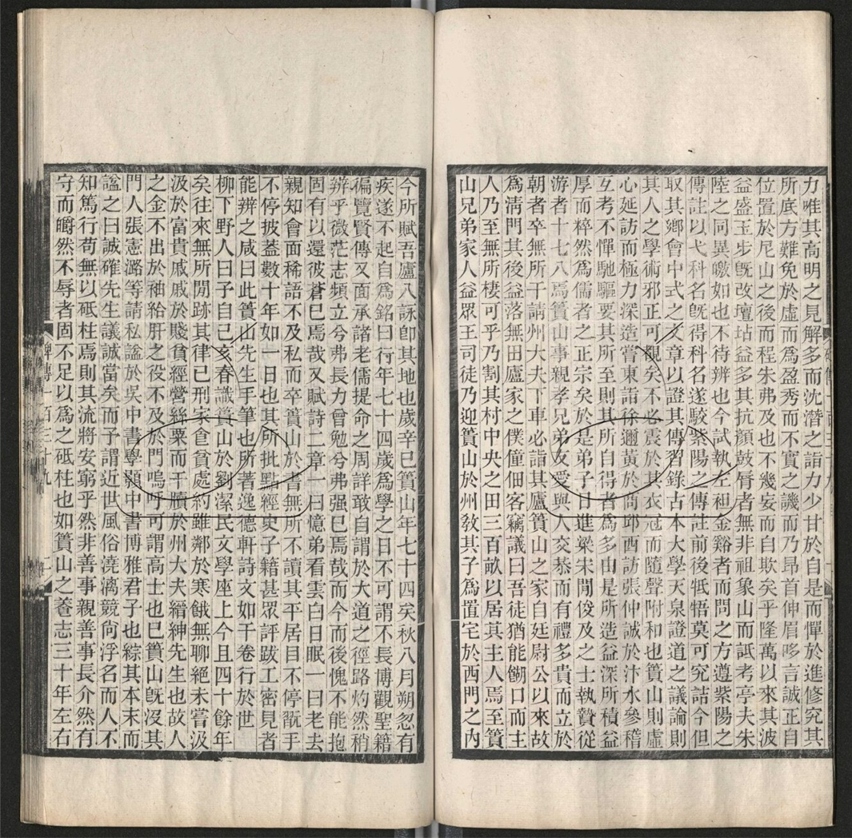 力唯其高明之見解多而沈潛之詣力少甘於自是而憚於進修究其
所底方難免於虛而為盈秀而不實之譏而乃昂首伸眉哆言誠正自
位置於尼山之後而程朱弗及也不幾妄而自欺矣乎隆萬以來其波
益盛玉步旣改壇坫益多其抗顏鼓脣者無非祖象山而詆考亭夫朱
陸之同異皦如也不待辨也今試執左袒金谿者而問之方遵紫陽之
傳註以弋科名旣得科名遂較紫陽之傳註前後牴牾莫可究詰今但
取其鄉會中式之文章以證其傳習錄古本大學天泉證道之議論則
其人之學術邪正可覩矣不必震於其衣冠而隨聲附和也簣山則虛
心延訪而極力深造嘗東詣徐邇黃於商邱西訪張仲誠於汴水參稽
互考不憚馳驅要其所至則其所自得者為多由是所造益深所積益
厚而粹然為儒者之正宗矣於是弟子日進梁宋閒俊及之士執贄從
游者十七八焉簣山事親孝兄弟友愛與人交恭而有禮多貴而立於
朝者卒無所干請州大夫下車必詣其廬簣山之家自廷尉公以來故
為清門其後益落無田廬家之僕僮佃客竊議曰吾徒猶能餬口而主
人乃至無所棲可乎乃割其村中央之田三百畝以居其主人焉至簣
山兄弟家人益眾王司徒乃迎簣山於州敎其子為置宅於西門之內
今所賦吾廬八詠卽其地也歲辛巳簣山年七十四矣秋八月朔忽有
疾遂不起自為銘曰行年七十四歲為學之日不可謂不長博觀聖籍
徧覽賢傳又面承諸老儒提命之周詳敢自謂於大道之徑路灼然稍
辨乎微茫志頻立兮弗長力曾勉兮弗强已焉哉而今而後愧不能抱
固有以還彼蒼已焉哉又賦詩二章一曰憶弟看雲白日眠一曰老去
親知會面稀語不及私而卒簣山於書無所不讀其平居目不停翫手
不停披蓋數十年如一日也其所批點經史子籍甚眾評跋工密見者
能辨之咸曰此簣山先生手筆也所著逸德軒詩文如干卷行於世
柳下野人曰予自己亥春識簣山於劉潔民文學座上今且四十餘年
矣往來無所閒跡其律己刑家食貧處約雖鄰於寒餓無聊絕未嘗汲
汲於富貴戚戚於賤貧經營絲粟而干牘於州大夫縉紳先生也故人
之金不出於袖給肝之役不及於門嗚呼可謂高士也已簣山旣沒其
門人張憲潞等請私諡於吳中書學顥中書博雅君子也綜其本末而
諡之曰誠確先生議誠當矣而予謂近世風俗澆漓競尙浮名而人不
知篤行苟無以砥柱焉則其流將安窮乎然非善事親善事長介然有
守而皭然不辱者固不足以為之砥柱也如簣山之養志三十年左右
碑傳一百三十九